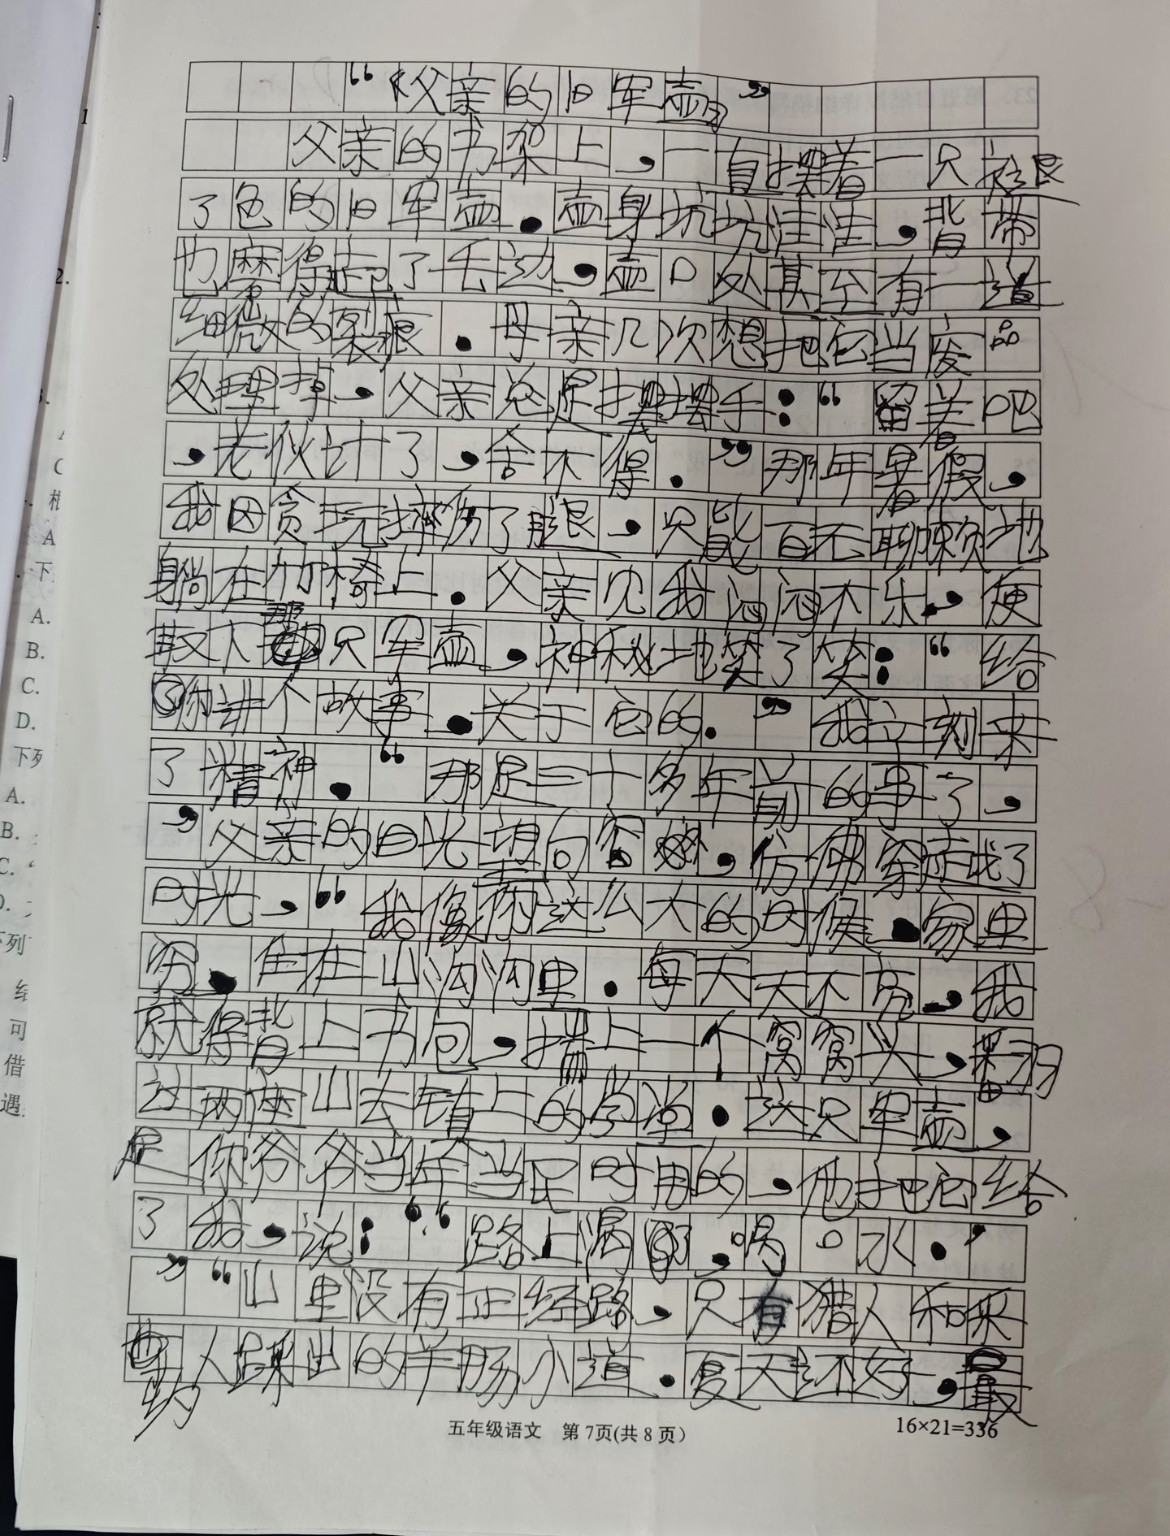 “父亲的旧军壶”
父亲的书架上，一直摆着一只褪
了色的旧军壶。壶身坑坑洼洼，背带
也磨得起了毛边，壶口处甚至有一道
细微的裂痕。母亲几次想把它当废品
处理掉，父亲总是摆摆手：“留着吧
，老伙计了，舍不得。”那年暑假，
我因贪玩摔伤了腿，只能百无聊赖地
躺在竹椅上。父亲见我闷闷不乐，便
取下那只军壶，神秘地笑了笑：“给
你讲个故事，关于它的。”我立刻来
了精神。“那是三十多年前的事了，
”父亲的目光望向窗外，仿佛穿越了
时光，“我像你这么大的时候，家里
穷，住在山沟沟里。每天天不亮，我
就得背上书包，揣上一个窝窝头，翻
过两座山去镇上的学堂。这只军壶，
是你爷爷当年当民时用的，他把它给
了我，说：“路上渴了，喝口水。’
”“山里没有正经路，只有猎人和采
人踩出的羊肠小道。夏天还好，最
五年级语文 第7页(共8页)
16×21=336
1
2.
A
下
A.
B.
C.
D.
下列
A.
B.
可
借
遇